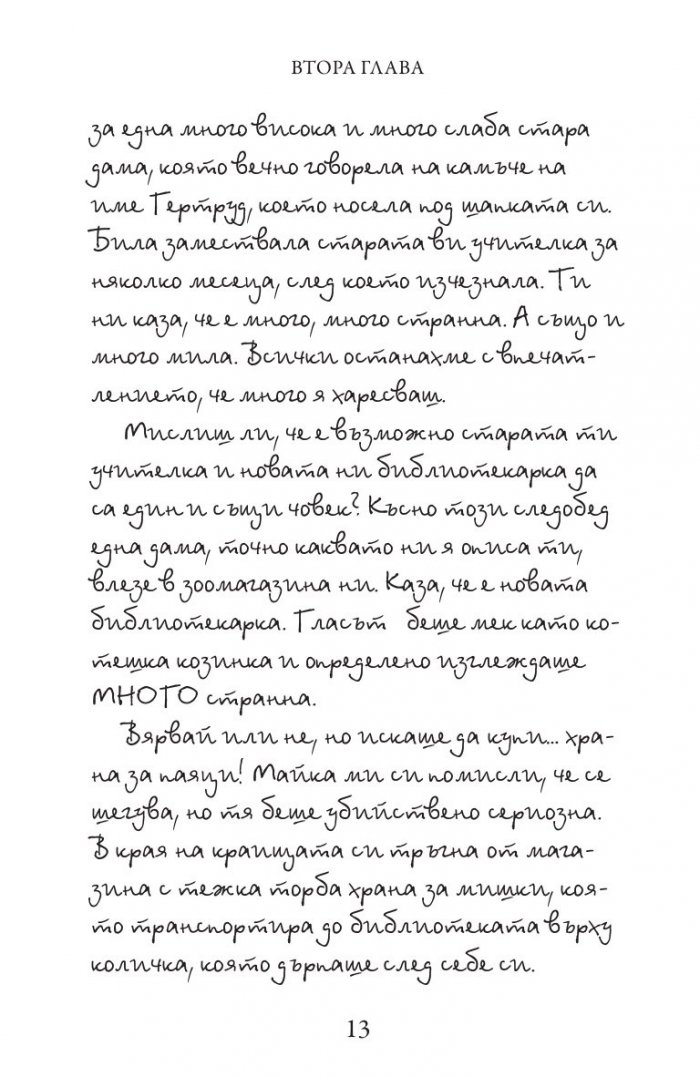 ВТОРА ГЛАВА
за една много висока и много слаба стара
дама, която вечно говорела на камъче на
име Гертруд, което носела под шапката си.
Била замествала старата ви учителка за
няколко месеца, след което изчезнала. Ти
ни каза, че е много, много странна. А също и
много мила. Всички останахме с впечат-
лението, че много я харесваш.
Мислиш ли, че е възможно старата ти
учителка и новата ни библиотекарка да
са един и същи човек? Късно този следобед
една дама, точно каквато ни я описа ти,
влезе в зоомагазина ни. Каза, че е новата
библиотекарка. Гласът беше мек като ко-
тешка козинка и определено изглеждаше
МНОГО странна.
Вярвай или не, но искаше да купи... хра-
на за паяци! Майка ми си помисли, че се
шегува, но тя беше убийствено сериозна.
В края на краищата си тръгна от мага-
зина с тежка торба храна за мишки, коя-
то транспортира до библиотеката върху
количка, която дърпаше след себе си.
13